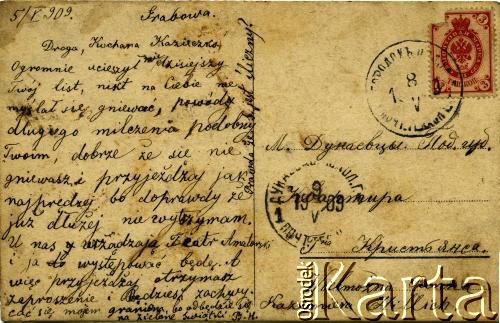 5/V 909. Grabowa.
Droga, Kochana Kazieczko,
Ogromnie ucieszył mię dzisiejszy
Twój list, nikt na Ciebie nie
myślał się gniewać, powód
długego milczenia podobny
Twoim, dobrze że się nie
gniewasz i przyjeżdżaj jak
najprędzej bo doprawdy że
już dłużej nie wytrzymam.
U nas urządzają Teatr Amatorski
i ja to występować będę. A
więc przyjeżdżaj otrzymasz
zaproszenie i będziesz zachwy-
cać się mojem graniem, bo odbędzie się
na zielone świątki. B.H.
jest śliczny?
3
8
V
М. Дунаевцы. Под. губ.
Квартира
9
V
1
Кристьянса.
Kazimiera
Ośrodek
Karta